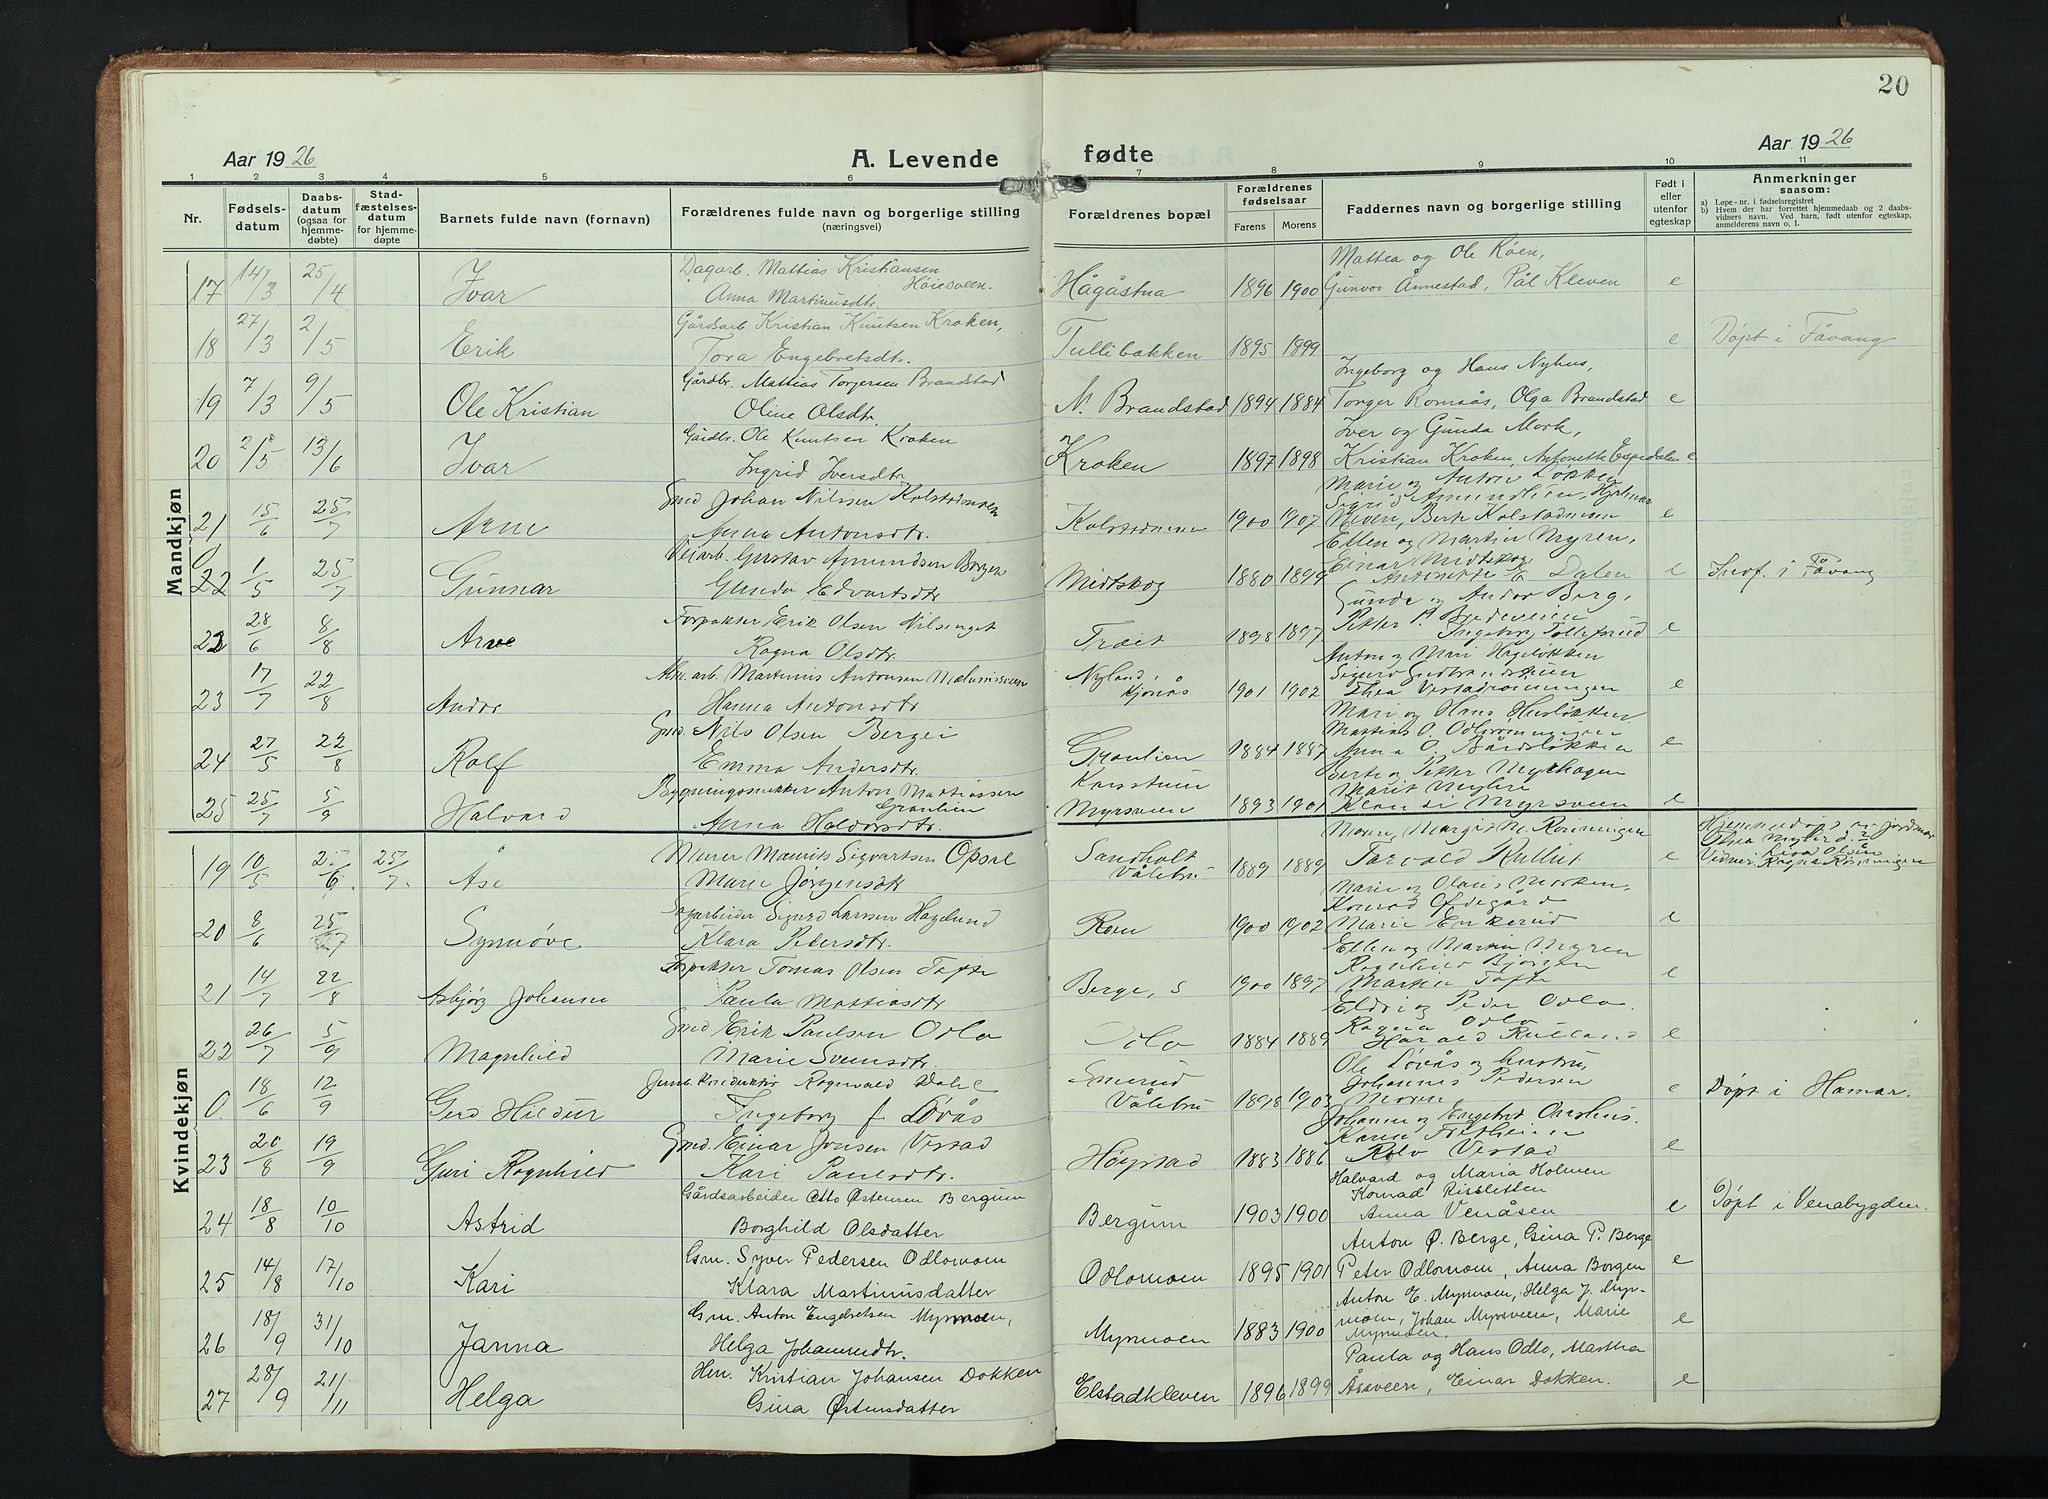 20
Aar 1926 A. Levende fødte Aar 1926
1 2 3 4 5 6 7 8 9 10 11
Nr. Fødselsdatum Daabsdatum (ogsaa for hjemmedøbte) Stadfæstelsesdatum for hjemmedøpte Barnets fulde navn (fornavn) Forældrenes fulde navn og borgerlige stilling (næringsvei) Forældrenes bopæl Forældrenes fødselsaar Farens Morens Faddernes navn og borgerlige stilling Født i eller utenfor egteskap Anmerkninger saasom:
a) Løpe-nr. i fødselsregistret
b) Hvem der har forrettet hjemmedaab og 2 daabsvidners navn. Ved barn, født utenfor egteskap, anmelderens navn o. l.
Mandkjøn
Dagarb. Mattias Kristiansen Høiesveen. Mattea og Ole Røen,
17 14/3 25/4 Ivar Anna Martinusdtr. Hågåstua 1896 1900 Gunvor Annestad, Pål Kleven e
Gårdsarb Kristian Knutsen Kroken,
18 27/3 2/5 Erik Tora Engebretsdtr. Tullibakken 1895 1899 e Døpt i Fåvang
Gårdbr. Mattias Torgersen Brandstad Ingeborg og Hans Nyhus,
19 7/3 9/5 Ole Kristian Oline Olsdtr. N. Brandstad 1894 1884 Torger Romsås, Olga Brandstad e
Gårdbr. Ole Knutsen Kroken Iver og Gunda Mork,
20 2/5 13/6 Ivar Ingrid Iversdtr. Kroken 1897 1898 Kristian Kroken, Antonette Espedalen e
Smed Johan Nilssen Kolstadmoen Marie og Anton Løkken
21 15/6 25/7 Arne Anna Antonsdtr. Kolstadmoen 1900 1907 Berte Kolstadmoen e
Veiarb. Gustav Amundsen Borgen Ellen og Martin Myren,
22 1/5 25/7 Gunnar Gunda Edvartsdtr Midtskog 1880 1899 Einar Midtskog Antonette E Dalen e Indf. i Fåvang
Forpakter Erik Olsen Nilsenget Gunda og Andor Berg,
22 28/6 8/8 Arve Ragna Olsdtr. Træet 1898 1897 Petter P. Ingeborg e
arb. Martinus Antonsen Anton og Mari Hageløkken
23 17/7 22/8 Andor Hanna Antonsdtr Nyland, Kjønås 1901 1902 Thea e
Gmd. Nils Olsen Berget Mari og Hans
24 27/5 22/8 Rolf Emma Andersdtr. Graulien 1884 1887 Anna O. Bårdsløkken e
Bygningssnekker Anton Mattiassen Graulien Berte og Petter Myrhagen
25 25/7 5/9 Halvard Anna Haldorsdtr. Myrsveen 1893 1901 Marit Myhre Klaus Myrsveen e
Kvindekjøn
Murer Mauritz Sigvartsen Opsal Moren, Margit M. Rønningen
19 10/5 25/6. 25/7. Åse Marie Jørgensdtr Sandholt Vålebru 1889 1889 Torvald e Ragna Rønningen
Sagarbeider Sigurd Larssen Haglund Marie og Olaus Morken,
20 8/6 25/7 Synnøve Klara Petersdtr. Roen 1900 1902 Konrad Marie Enkerud e
Forpakter Tomas Olsen Tofte Ellen og Martin Myren
21 14/7 22/8 Asbjørg Johanne Paula Mattiasdtr Berge, s 1900 1897 Ragnhild Bjørgen Martin Tofte e
Gmd Erik Paulsen Odlo Eldri og Peder Odlo.
22 26/7 5/9 Magnhild Marie Svensdtr. Odlo 1884 1889 Ragna Odlo Harald e
Jernb.konduktør Ragnvald Dahl Ole Løvås og hustru,
0. 18/6 12/9 Gerd Hildur Ingeborg f. Løvås Smerud Vålebru 1898 1903 Johannes Pedersen Moren e Døpt i Hamar.
Gmd. Einar Jonsen Vestad Johanne og Engebret
23 20/8 19/9 Guri Ragnhild Kari Paulsdtr. Høystad 1883 1886 Karen Rolv Vestad e
Gårdsarbeider Otto Østensen Bergum Halvard og Maria Holmen
24 18/8 10/10 Astrid Borghild Olsdatter Bergum 1903 1900 Konrad Risletten Anna Venåsen e Døpt i Venabygden.
Gsm. Syver Pedersen Odlomoen Anton Ø. Berge, Gina P. Berge
25 14/8 17/10 Kari Klara Martinusdatter Odlomoen 1895 1901 Peter Odlomoen, Anna Borgen e
Gsm. Anton Engebretsen Myrmoen, Anton E. Myrmoen, Helga J. Myr-
26 18/9 31/10 Janna Helga Johannesdtr. Myrmoen 1883 1900 moen, Johan Myrsveen, Marie Myrmoen. e
Hm. Kristian Johansen Dokken Paula og Hans Odlo, Martha
27 28/9 21/11 Helga Gina Østensdatter Elstadkleven 1896 1899 Åssveen, Einar Dokken. e